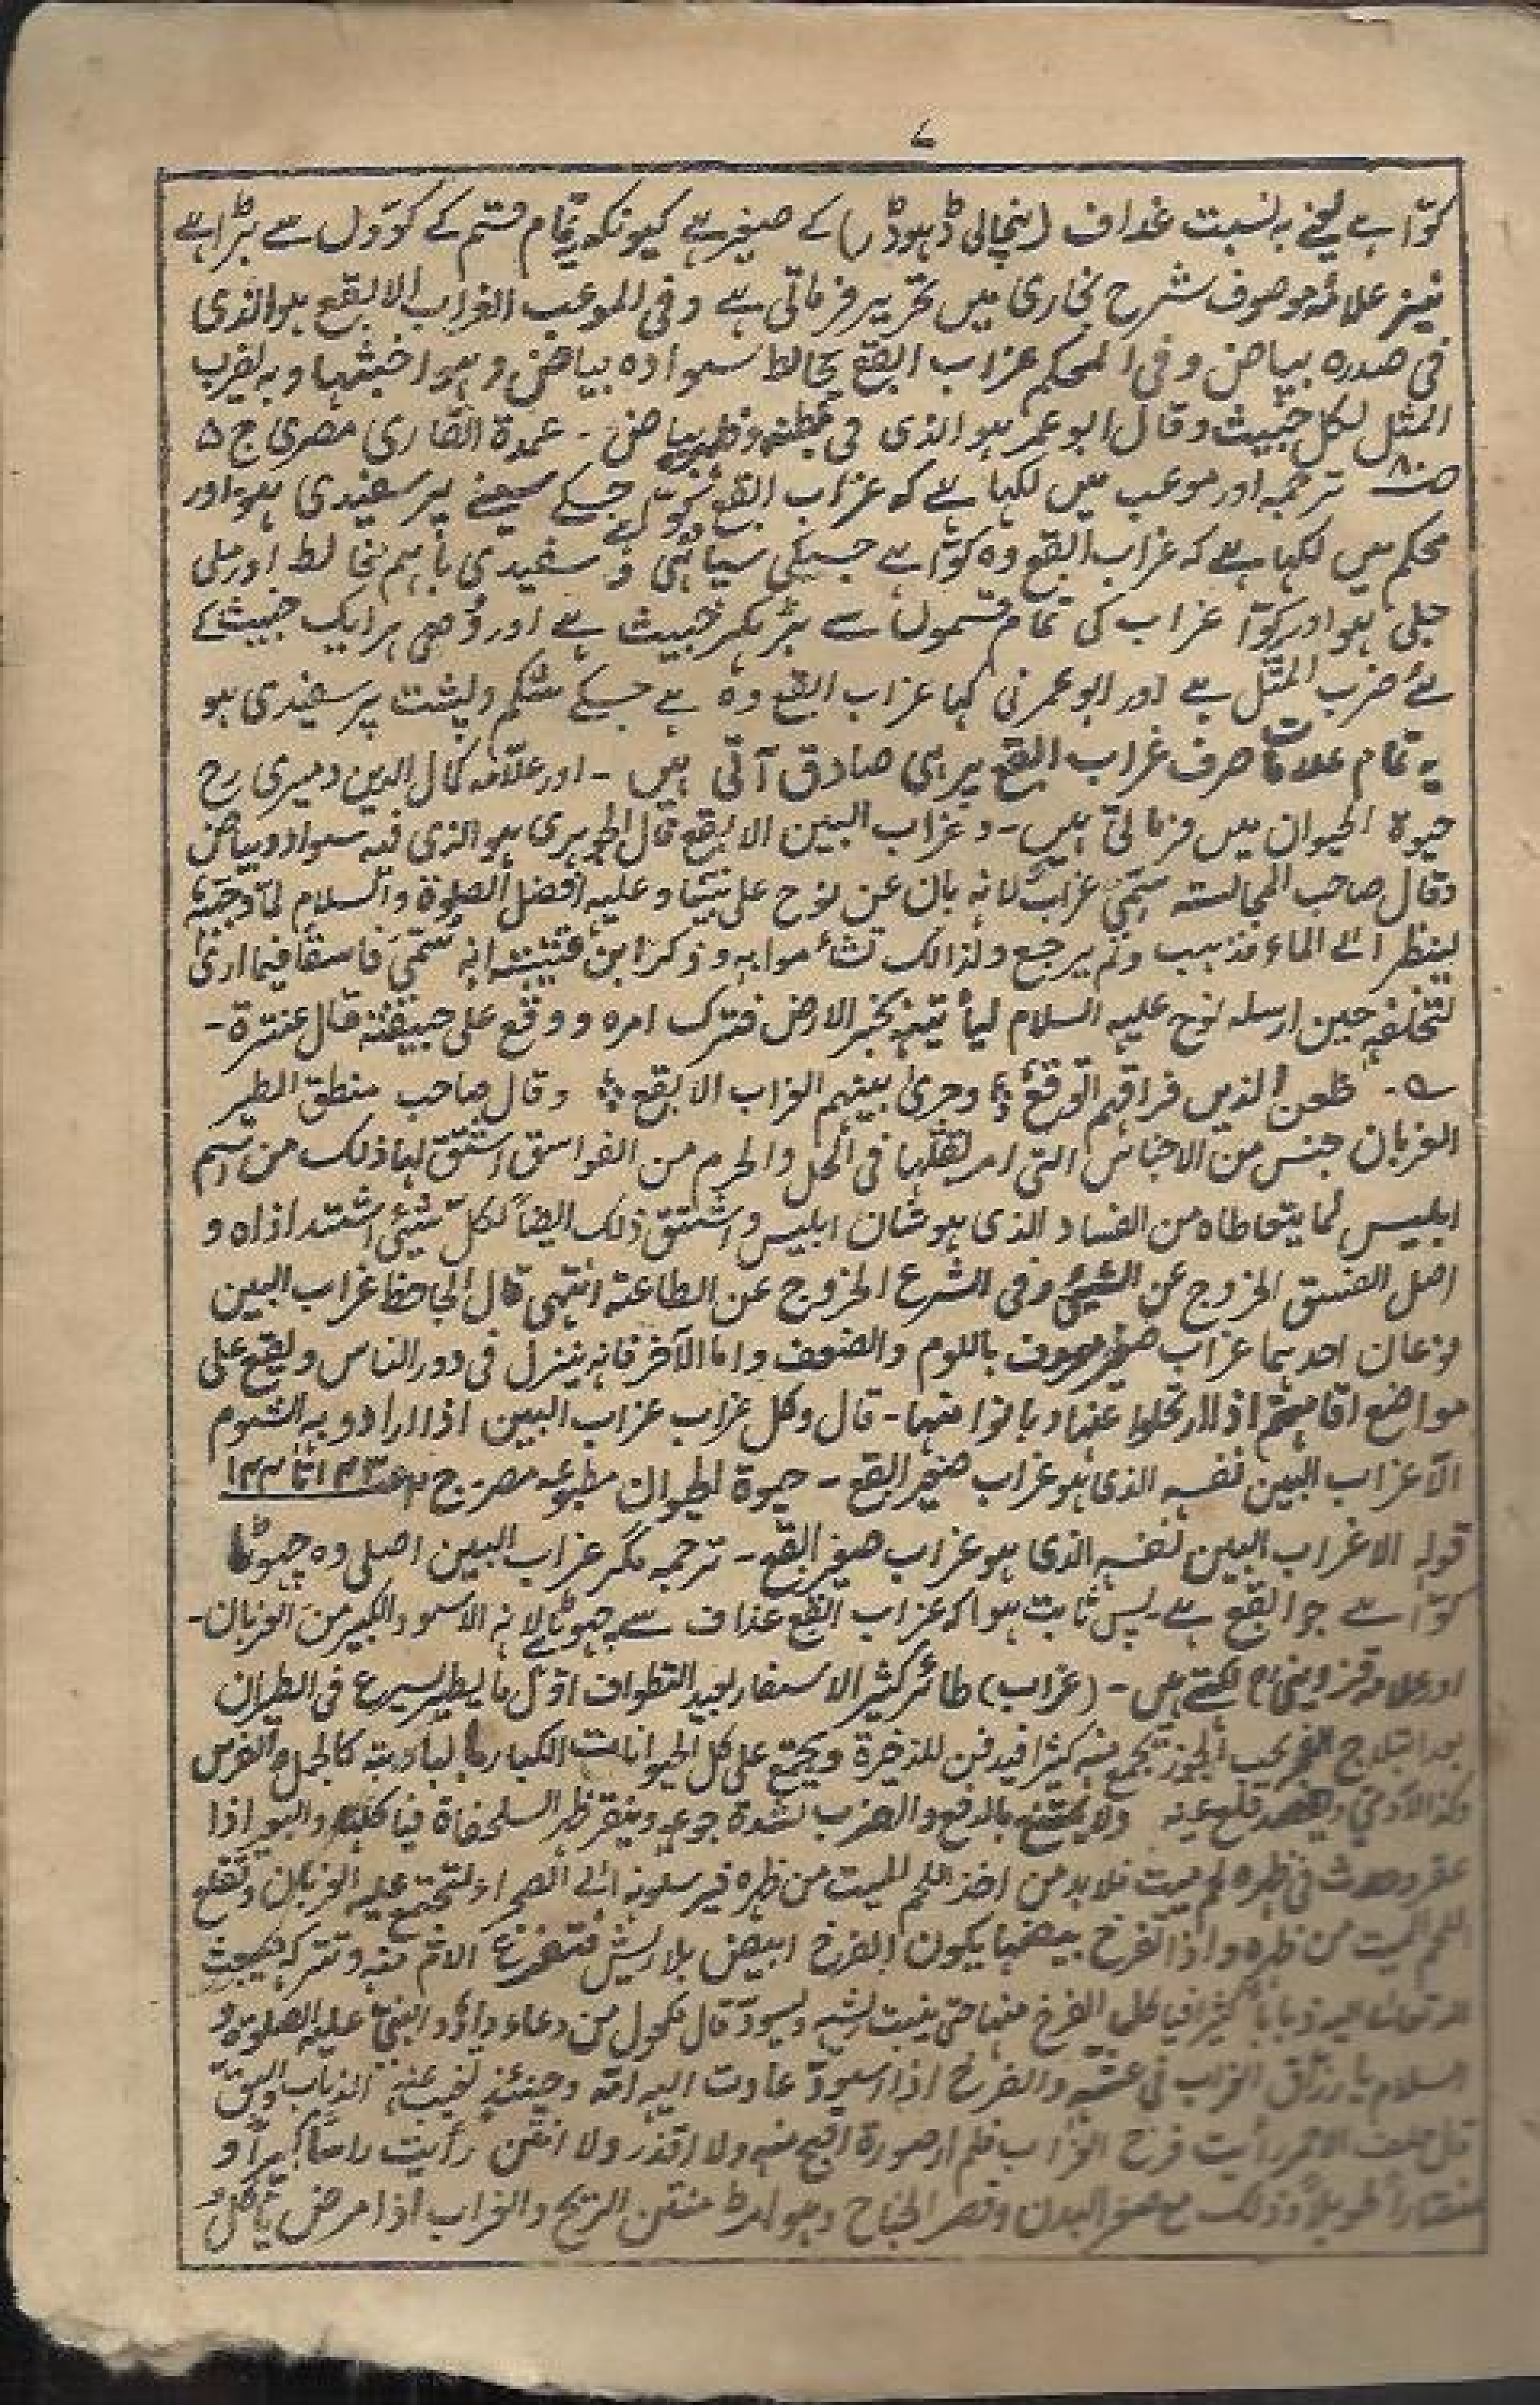 ۷
کوّا ہے یعنے بہ نسبت غداف (پنجابی ڈہوڈر) کے صغیر ہے کیونکہ یہ تمام قسم کے کووں سے بڑا ہے
نیز علامہ موصوف شرح بخاری میں تحریر فرماتی ہے وفی الموعب الغراب الابقع ہو الذی
فی صدرہ بیاض وفی المحکم غراب ابقع یخالط سوادہ بیاض وہو اخبثہا وبہ یضرب
المثل لکل خبیث وقال ابو عمر ہو الذی فی بطنہ وظہرہ بیاض ۔ عمدۃ القاری مصری ج ۵
صـ۸۰ ترجمہ اور موعب میں لکہا ہے کہ غراب ابقع وہ کوّا ہے جسکے سینے پر سفیدی ہو اور
محکم میں لکہا ہے کہ غراب ابقع وہ کوّا ہے جسکی سیاہی و سفیدی باہم مخالط اور ملی
جلی ہو اور یہ کوّا غراب کی تمام قسموں سے بڑہکر خبیث ہے اور وُہی ہر ایک خبیث کے
لئے ضرب المثل ہے اور ابو عمر نی کہا غراب ابقع وہ ہے جسکے شکم و پشت پر سفیدی ہو
یہ تمام علامات صرف غراب ابقع پر ہی صادق آتی ہیں ۔ اور علامہ کمال الدین دمیری رح
حیوۃ الحیوان میں فرماتی ہیں ۔ وغراب البین الابقع قال الجوہری ہو الذی فیہ سواد وبیاض
وقال صاحب المجالسۃ سمّی غراب لانہ بان عن نوح علی نبینا وعلیہ افضل الصلوۃ والسلام لما وجہہٗ
لینظر الے الماء فذہب ولم یرجع ولذالک تشاءموا بہ وذکر ابن قتیبۃ انہ سمّی فاسقا فیما اریٰ
لتخلفہ حین ارسلہ نوح علیہ السلام لیأتیہ بخبر الارض فترک امرہ ووقع علی جیفۃ قال عنترۃ ۔
؎ ۔ ظعن الذین فراقہم اتوقع ؛ وجریٰ بینہم الغراب الابقع ؛ وقال صاحب منطق الطیر
الغربان جنس من الاجناس التی امر بقتلہا فی الحل والحرم من الفواسق اشتق لہا ذلک من اسم
ابلیس لما یتعاطاہ من الفساد الذی ہو شان ابلیس واشتق ذلک ایضاً لکل شیٔ اشتد اذاہ و
اصل الفسق الخروج عن الشیٔ وفی الشرع الخروج عن الطاعۃ انتہی قال الجاحظ غراب البین
نوعان احدہما غراب صغیر معروف باللوم والضعف واما الآخر فانہ ینزل فی دور الناس ویقع علی
مواضع اقامتہم اذا ارتحلوا عنہا وبانوا منہا ۔ قال وکل غراب غراب البین اذا ارادو بہ الشوم
الا غراب البین نفسہ الذی ہو غراب صغیر ابقع ۔ حیوۃ الحیوان مطبوعہ مصر ج ۲ صـ۱۴۳ تا ۱۴۴
قولہ الا غراب البین نفسہ الذی ہو غراب صغیر ابقع ۔ ترجمہ مگر غراب البین اصلی وہ چہوٹا
کوّا ہے جو ابقع ہے ۔ پس ثابت ہوا کہ غراب ابقع غداف سے چہوٹا ہے لانہ الاسود الکبیر من الغربان ۔
اور علامہ قزوینی رح لکہتے ہیں ۔ (غراب) طائر کثیر الاسفار بعید التطواف اوّل ما یطیر یسرع فی الطیران
بعد ابتلاج الفجر یحب الجوز یجمع منہ کثیرا فیدفن للذخیرۃ ویجتمع علی کل الحیوانات الکبار بالبادیۃ کالجمل والفرس
وکذا الآدمی ویقصد قلع عینہ ولا یمتنع بالدفع والضرب لشدۃ جوعہ وینقر ظہر السلحفاۃ فیاکلہا والبعیر اذا
عقر وحدث فی ظہرہ لحم میت فلا بد من اخذ اللحم المیت من ظہرہ فیرسلونہ الے الصحراء لتجتمع علیہ الغربان وتقلع
اللحم المیت من ظہرہ واذا تفرخ بیضہا یکون الفرخ ابیض بلا ریش فتنفر عنہ الام منہ وتترکہ فیبعث
اللہ تعالیٰ الیہ ذبابا کثیرا فیاکل الفرخ منہا حتیٰ ینبت ریشہ ویسودّ قال مکحول من دعاء داؤد النبیّ علیہ الصلوۃ و
السلام یا رزاق الغراب فی عشّہ والفرخ اذا اسودّ عادت الیہ امّہ وحینئذ یغیب عنہ الذباب والبق
قال خلف الاحمر رأیت فرخ الغراب فلم ار صورۃ اقبح منہ ولا اقذر ولا انتن رأیت راساً کبیراً و
منقاراً طویلاً وذلک مع صغر البدن وقصر الجناح وہو امرط منتن الریح والغراب اذا مرض یأکلُ